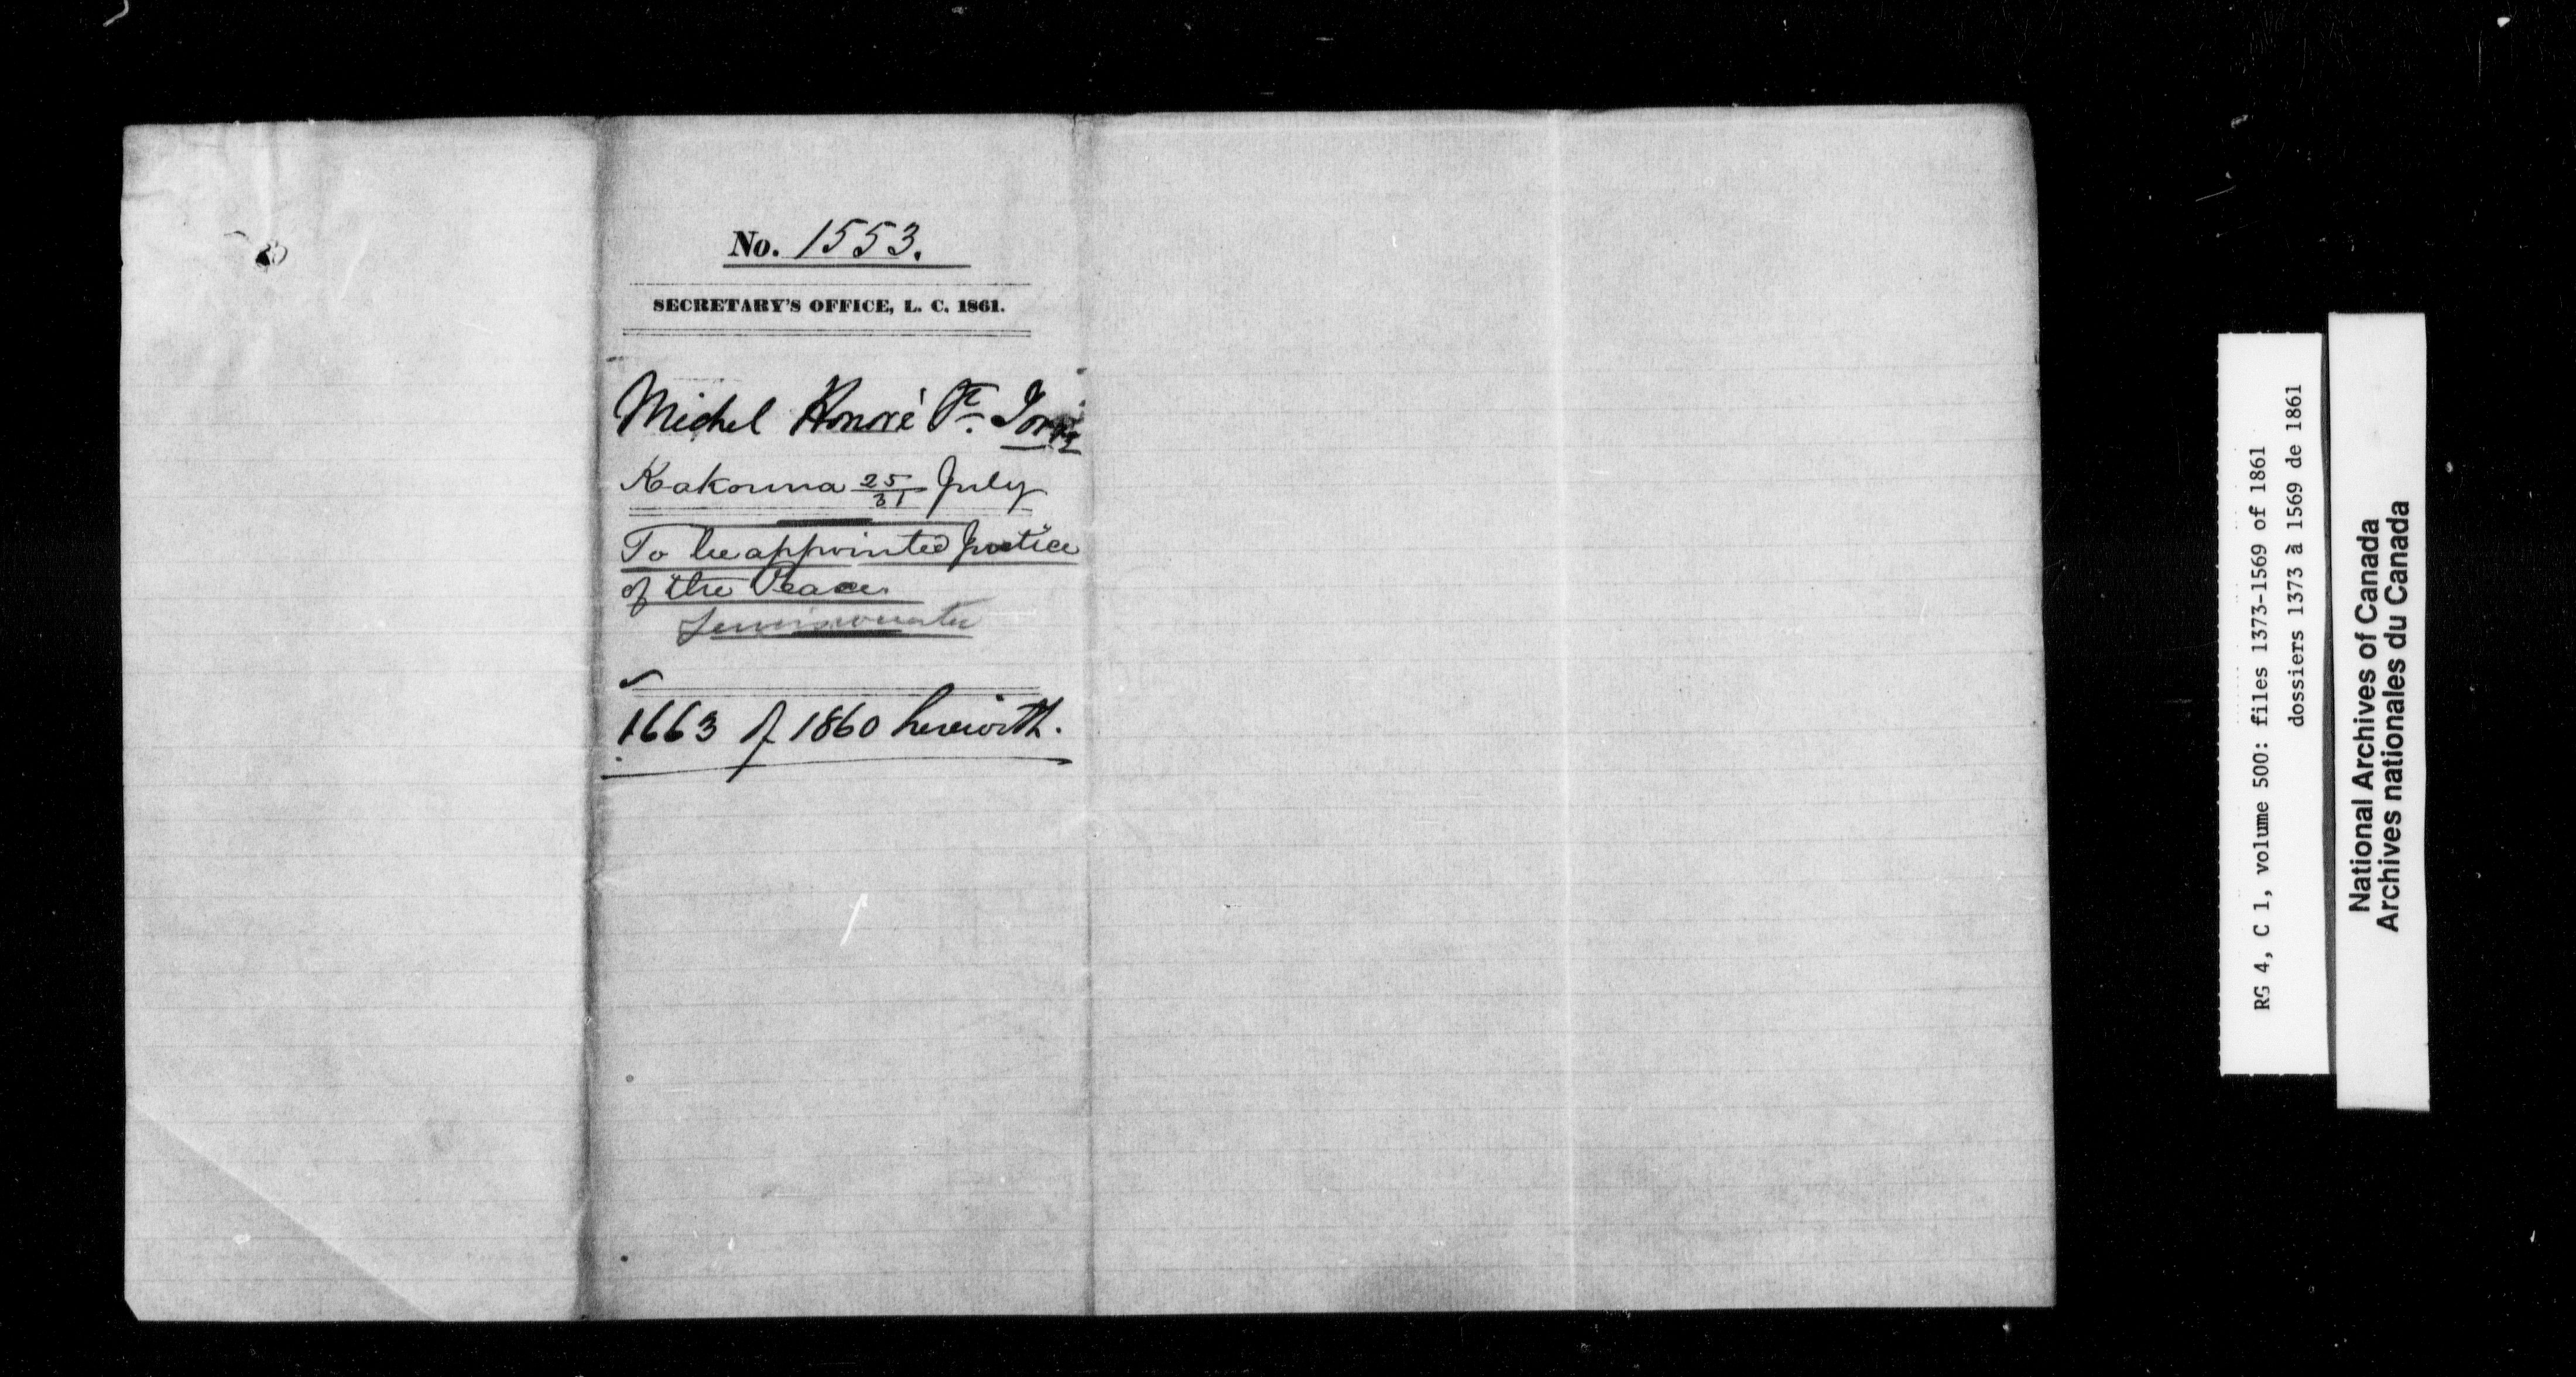 No. 1553.
SECRETARY'S OFFICE, L. C. 1861.
Michel Honoré
Kakouna 25/31 July
To be appointed Justice
of the Peace.
1663 of 1860 herewith.
RG 4, C 1, volume 500: files 1373-1569 of 1861
dossiers 1373 à 1569 de 1861
National Archives of Canada
Archives nationales du Canada